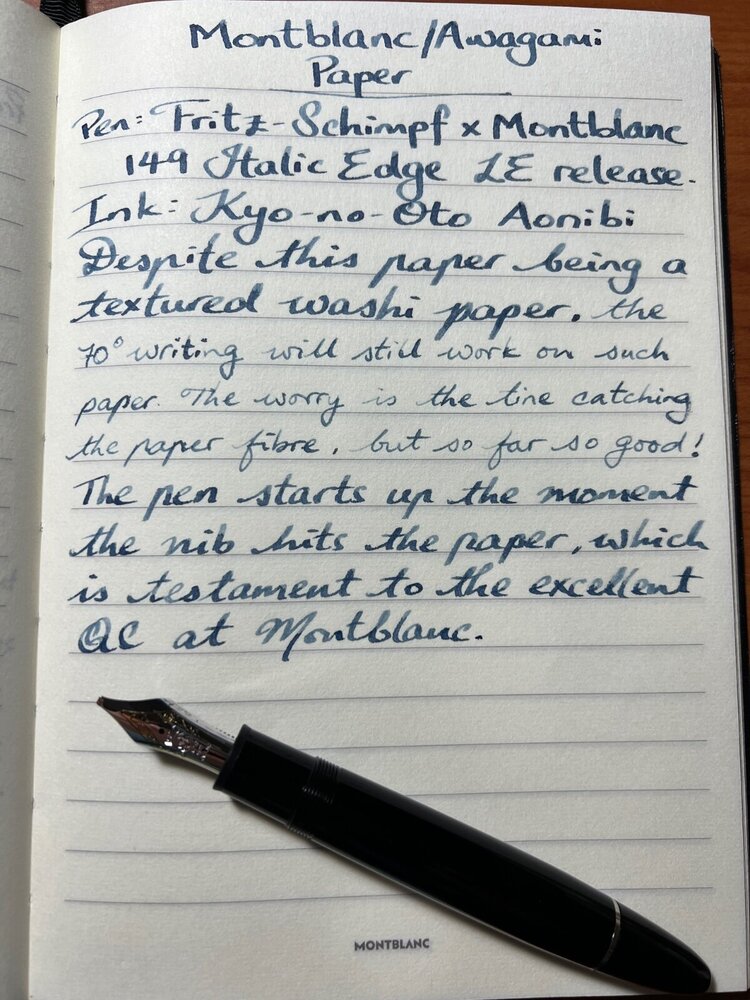 Montblanc/Awagami
Paper
Pen: Fritz-Schimpf x Montblanc
149 Italic Edge LE release.
Ink: Kyo-no-Oto Aonibi
Despite this paper being a
textured washi paper, the
70° writing will still work on such
paper. The worry is the tine catching
the paper fibre, but so far so good!
The pen starts up the moment
the nib hits the paper, which
is testament to the excellent
QC at Montblanc.
MONTBLANC